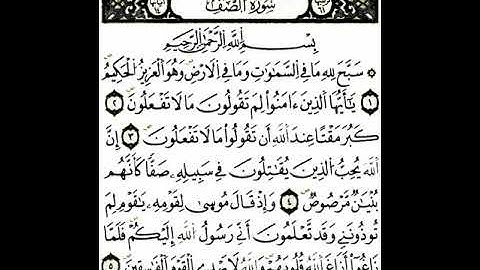 سُورَةُ الصَّفِّ
بِسْمِ اللَّهِ الرَّحْمَٰنِ الرَّحِيمِ
سَبَّحَ لِلَّهِ مَا فِي السَّمَٰوَٰتِ وَمَا فِي الْأَرْضِ وَهُوَ الْعَزِيزُ الْحَكِيمُ
١ يَٰٓأَيُّهَا الَّذِينَ ءَامَنُوا لِمَ تَقُولُونَ مَا لَا تَفْعَلُونَ ٢
كَبُرَ مَقْتًا عِندَ اللَّهِ أَن تَقُولُوا مَا لَا تَفْعَلُونَ ٣ إِنَّ
اللَّهَ يُحِبُّ الَّذِينَ يُقَٰتِلُونَ فِي سَبِيلِهِ صَفًّا كَأَنَّهُم
بُنْيَٰنٌ مَّرْصُوصٌ ٤ وَإِذْ قَالَ مُوسَىٰ لِقَوْمِهِ يَٰقَوْمِ لِمَ
تُؤْذُونَنِي وَقَد تَّعْلَمُونَ أَنِّي رَسُولُ اللَّهِ إِلَيْكُمْ فَلَمَّا
زَاغُوا أَزَاغَ اللَّهُ قُلُوبَهُمْ وَاللَّهُ لَا يَهْدِي الْقَوْمَ الْفَٰسِقِينَ ٥